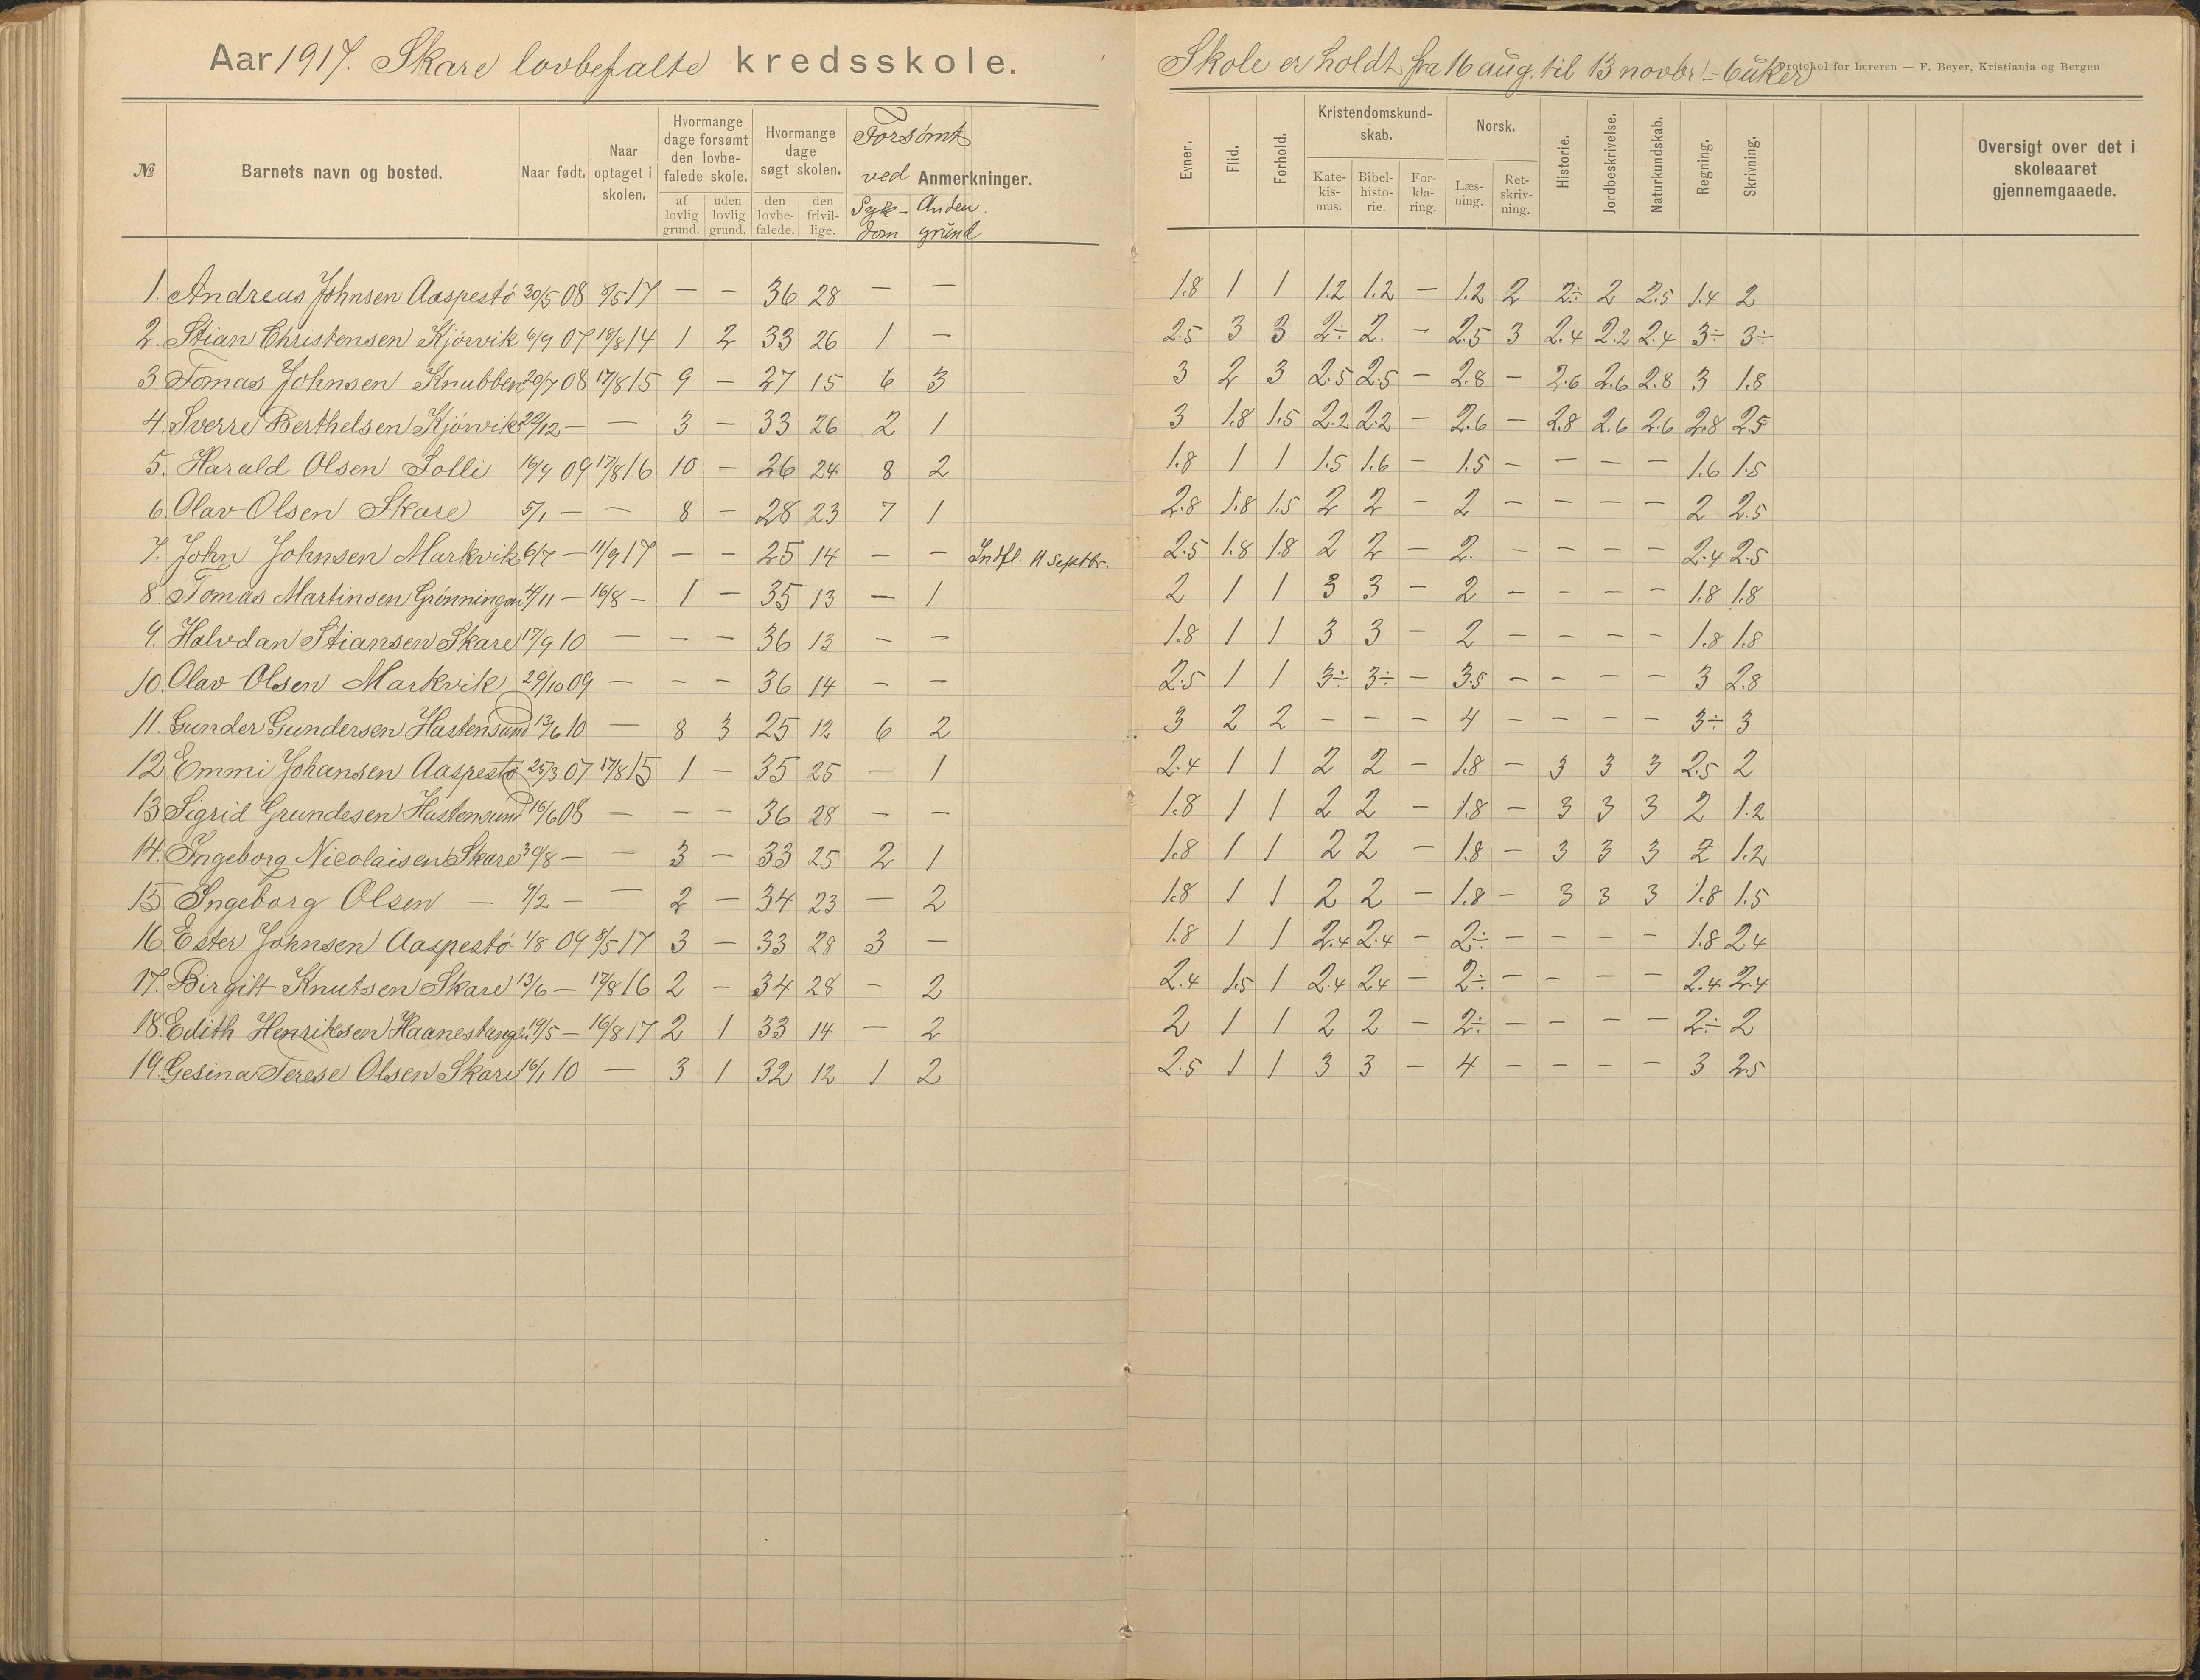 Aar 1917. Skare lovbefalte kredsskole.
Skole er holdt fra 16 aug. til 13 novbr. = 6 uker
Protokol for læreren — F. Beyer, Kristiania og Bergen
№ Barnets navn og bosted. Naar født. Naar optaget i skolen. Hvormange dage forsømt den lovbefalede skole. Hvormange dage søgt skolen. Forsømt ved Anmerkninger.
af lovlig grund. uden lovlig grund. den lovbefalede. den frivillige. Sykdom Anden grund
Evner. Flid. Forhold. Kristendomskundskab. Norsk. Historie. Jordbeskrivelse. Naturkundskab. Regning. Skrivning. Oversigt over det i skoleaaret gjennemgaaede.
Katekismus. Bibelhistorie. Forklaring. Læsning. Retskrivning.
1. Andreas Johnsen Aaspestø 30/5 08 8/5 17 — — 36 28 — — 1.8 1 1 1.2 1.2 — 1.2 2 2÷ 2 2.5 1.4 2
2. Stian Christensen Kjørvik 6/9 07 18/8 14 1 2 33 26 1 — 2.5 3 3. 2÷ 2. — 2.5 3 2.4 2.2 2.4 3÷ 3÷
3 Tomas Johnsen Knubben 20/7 08 17/8 15 9 — 27 15 6 3 3 2 3 2.5 2.5 — 2.8 — 2.6 2.6 2.8 3 1.8
4. Sverre Berthelsen Kjørvik 22/12 — — 3 — 33 26 2 1 3 1.8 1.5 2.2 2.2 — 2.6 — 2.8 2.6 2.6 2.8 2.5
5. Harald Olsen Solli 16/9 09 17/8 16 10 — 26 24 8 2 1.8 1 1 1.5 1.6 — 1.5 — — — — 1.6 1.5
6. Olav Olsen Skare 5/1 — — 8 — 28 23 7 1 2.8 1.8 1.5 2 2 — 2 — — — — 2 2.5
7. John Johnsen Markvik 6/7 — 11/9 17 — — 25 14 — — Indfl. 11 septbr. 2.5 1.8 1.8 2 2 — 2. — — — — 2.4 2.5
8. Tomas Martinsen Grønningen 4/11 — 16/8 — 1 — 35 13 — 1 2 1 1 3 3 — 2 — — — — 1.8 1.8
9. Halvdan Stiansen Skare 17/9 10 — — — 36 13 — — 1.8 1 1 3 3 — 2 — — — — 1.8 1.8
10. Olav Olsen Markvik 29/10 09 — — — 36 14 — — 2.5 1 1 3÷ 3÷ — 3.5 — — — — 3 2.8
11. Gunder Gundersen Hastensund 13/6 10 — 8 3 25 12 6 2 3 2 2 — — — 4 — — — — 3÷ 3
12. Emmi Johansen Aaspestø 25/3 07 17/8 15 1 — 35 25 — 1 2.4 1 1 2 2 — 1.8 — 3 3 3 2.5 2
13 Sigrid Grundesen Hastensund 16/6 08 — — — 36 28 — — 1.8 1 1 2 2 — 1.8 — 3 3 3 2 1.2
14. Ingeborg Nicolaisen Skare 30/8 — — 3 — 33 25 2 1 1.8 1 1 2 2 — 1.8 — 3 3 3 2 1.2
15. Ingeborg Olsen — 9/2 — — 2 — 34 23 — 2 1.8 1 1 2 2 — 1.8 — 3 3 3 1.8 1.5
16 Ester Johnsen Aaspestø 1/8 09 8/5 17 3 — 33 28 3 — 1.8 1 1 2.4 2.4 — 2÷ — — — — 1.8 2.4
17. Birgitt Knutsen Skare 13/6 — 17/8 16 2 — 34 28 — 2 2.4 1.5 1 2.4 2.4 — 2÷ — — — — 2.4 2.4
18. Edith Henriksen Haanestangen 19/5 — 16/8 17 2 1 33 14 — 2 2 1 1 2 2 — 2÷ — — — — 2÷ 2
19. Gesina Terese Olsen Skare 16/1 10 — 3 1 32 12 1 2 2.5 1 1 3 3 — 4 — — — — 3 2.5